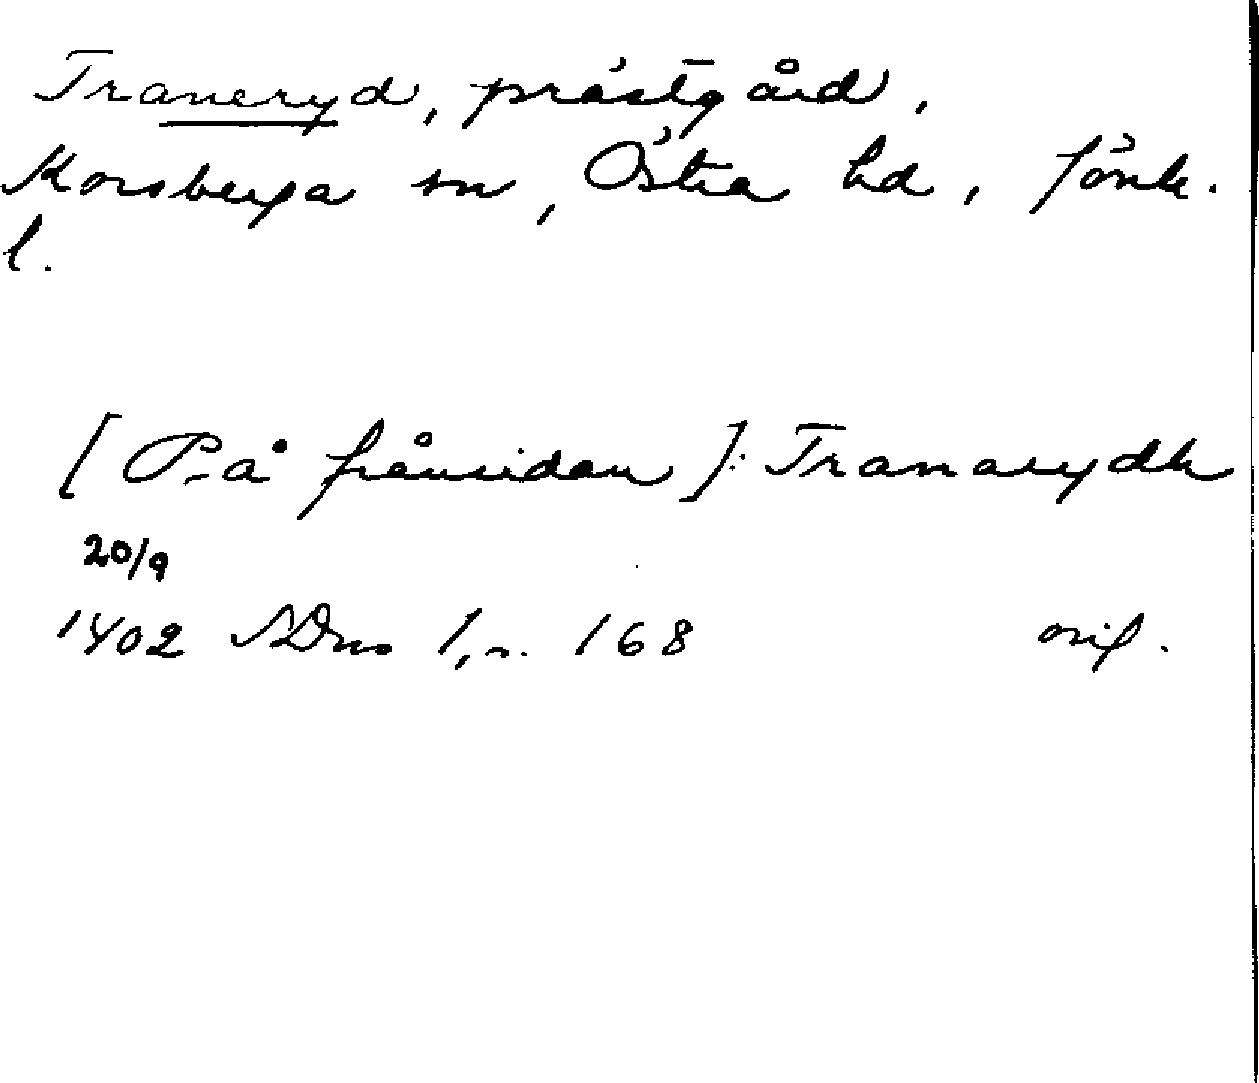 Traneryd, prästgård,
Korsberga sn, Östra hd, Jönk.
l.
[På frånsidan]: Tranarydh
20/9
1402 SDns 1, s. 168 orig.